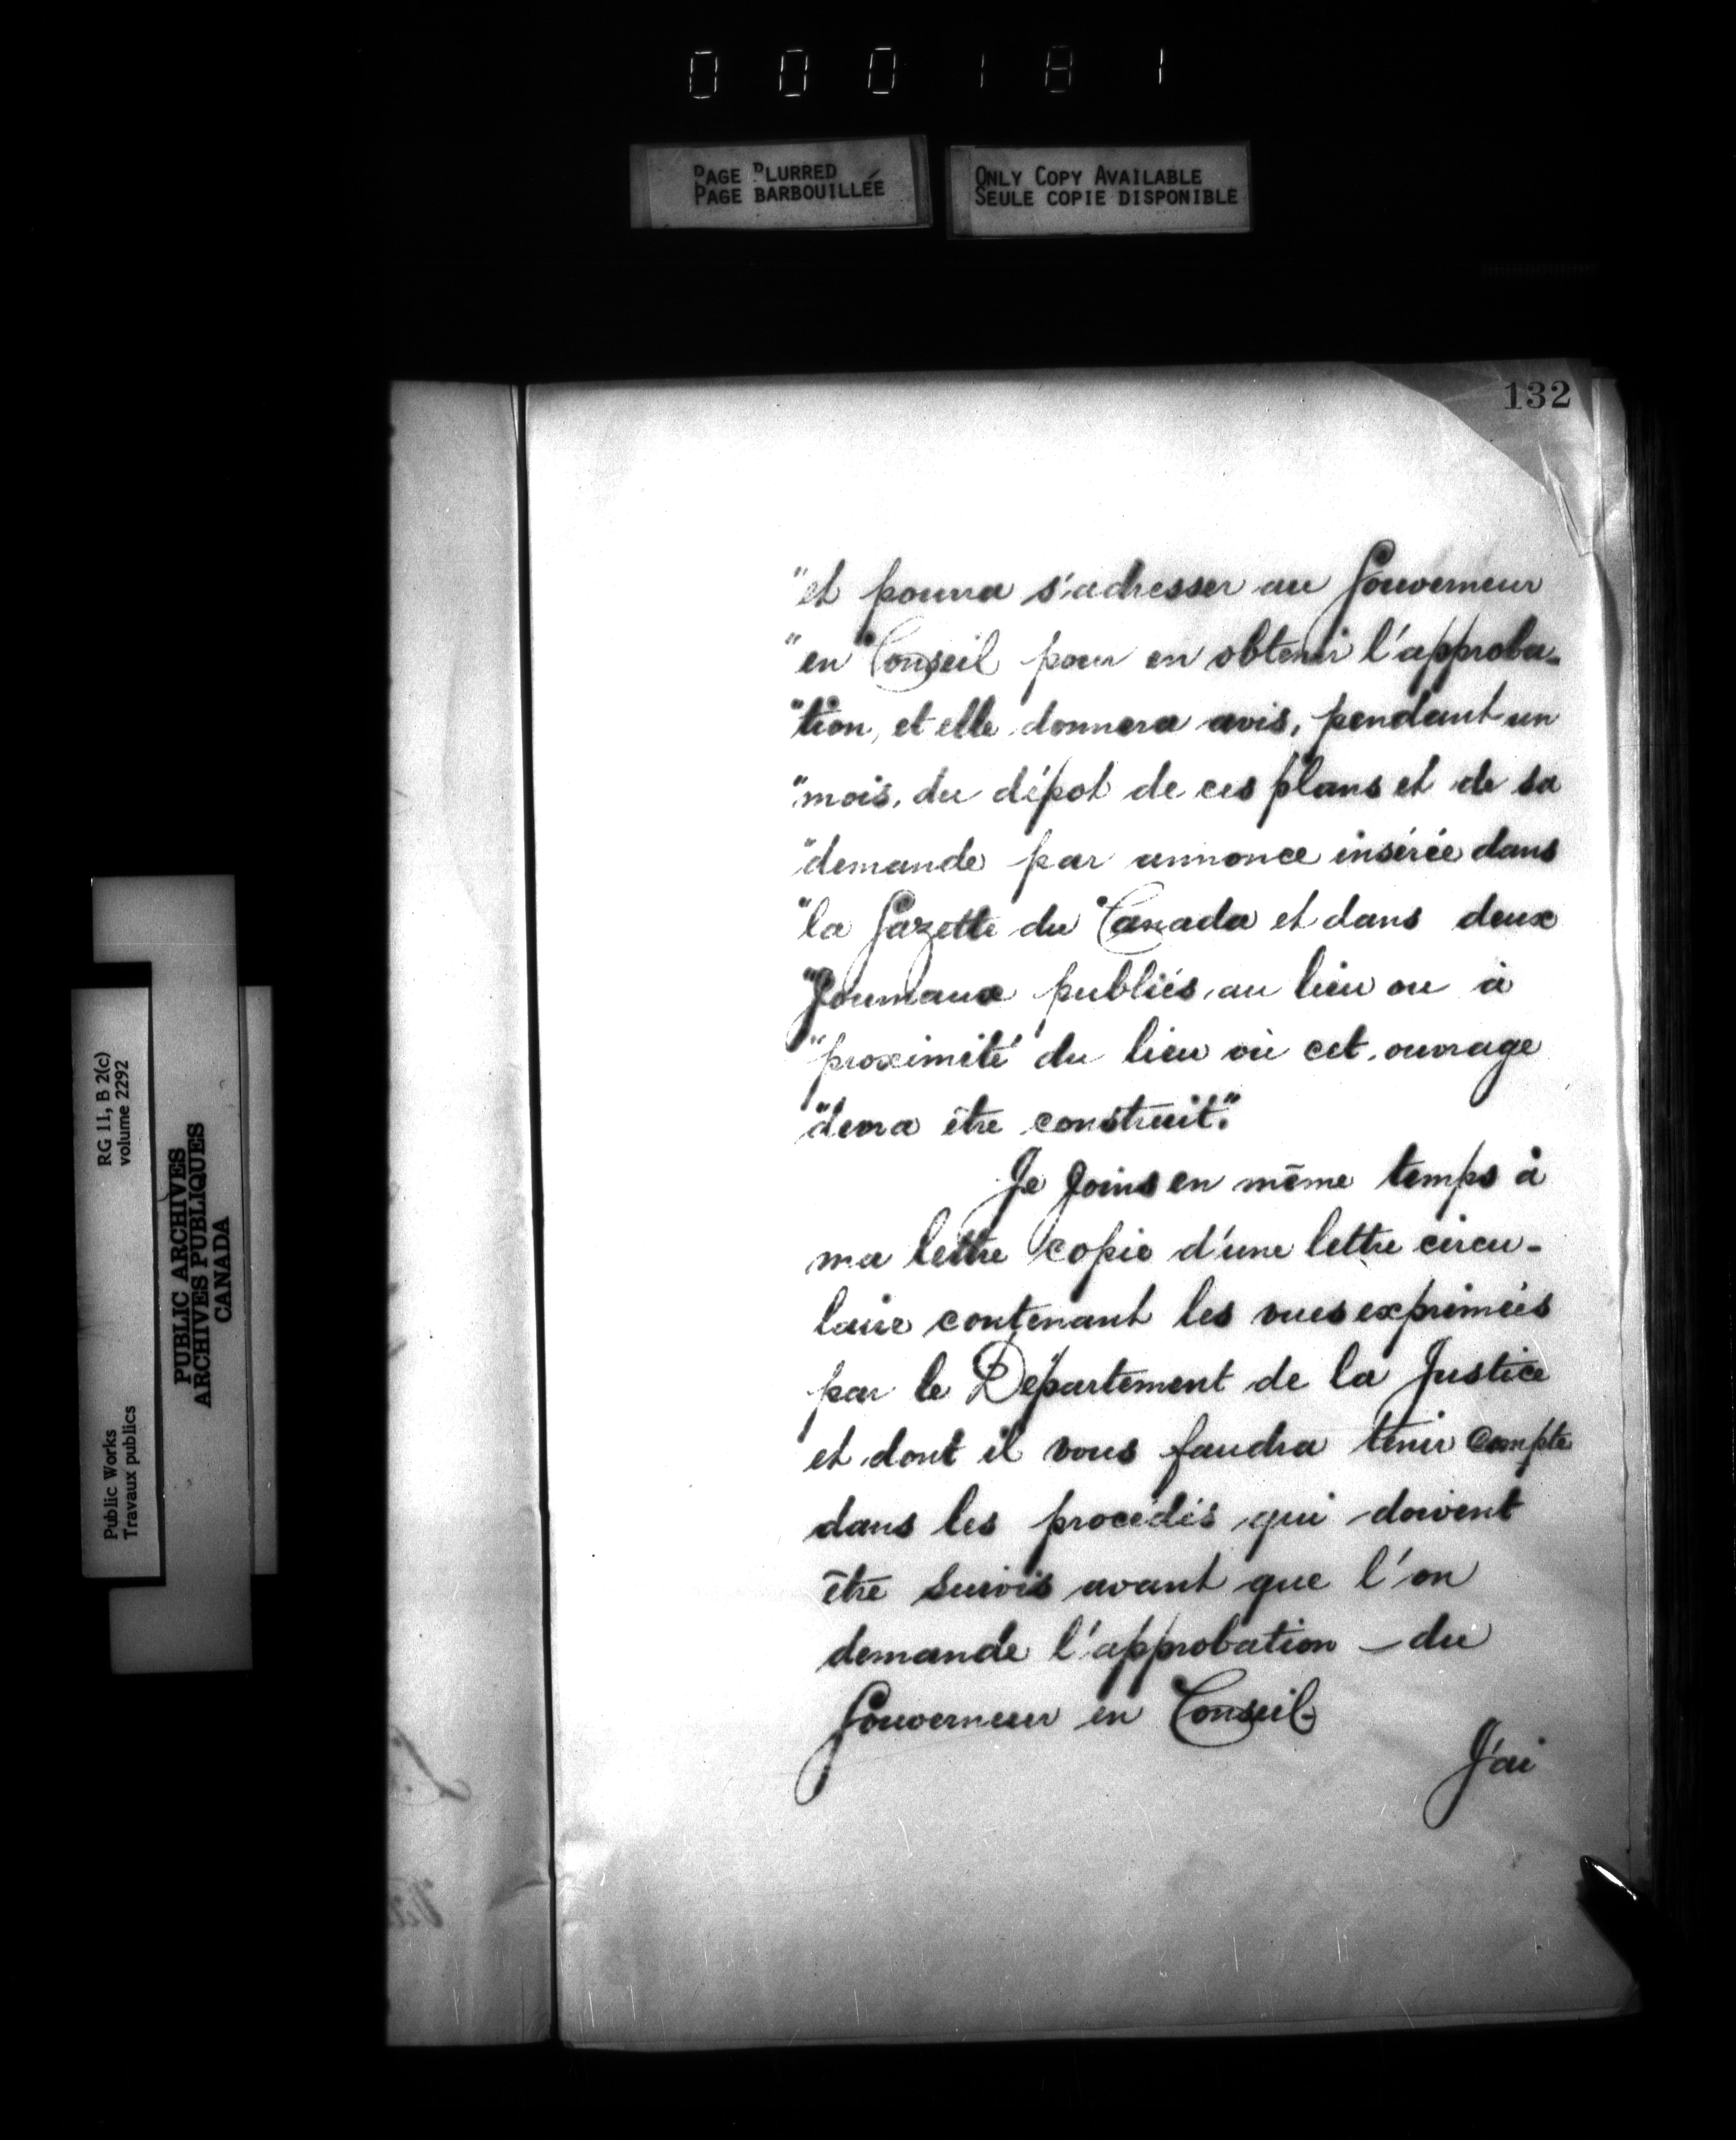 000181
PAGE BLURRED
PAGE BARBOUILLÉE
ONLY COPY AVAILABLE
SEULE COPIE DISPONIBLE
132
"et pourra s'adresser au Gouverneur
"en Conseil pour en obtenir l'approba-
"tion, et elle donnera avis, pendant un
"mois, du dépot de ces plans et de sa
"demande par annonce insérée dans
"la Gazette du Canada et dans deux
"Journaux publiés au lieu ou à
"proximité du lieu où cet ouvrage
"devra être construit."
Je joins en même temps à
ma lettre copie d'une lettre circu-
laire contenant les vues exprimées
par le Département de la Justice
et dont il vous faudra tenir compte
dans les procédés qui doivent
être suivis avant que l'on
demande l'approbation du
Gouverneur en Conseil-
J'ai
RG 11, B 2(c)
volume 2292
PUBLIC ARCHIVES
ARCHIVES PUBLIQUES
CANADA
Public Works
Travaux publics